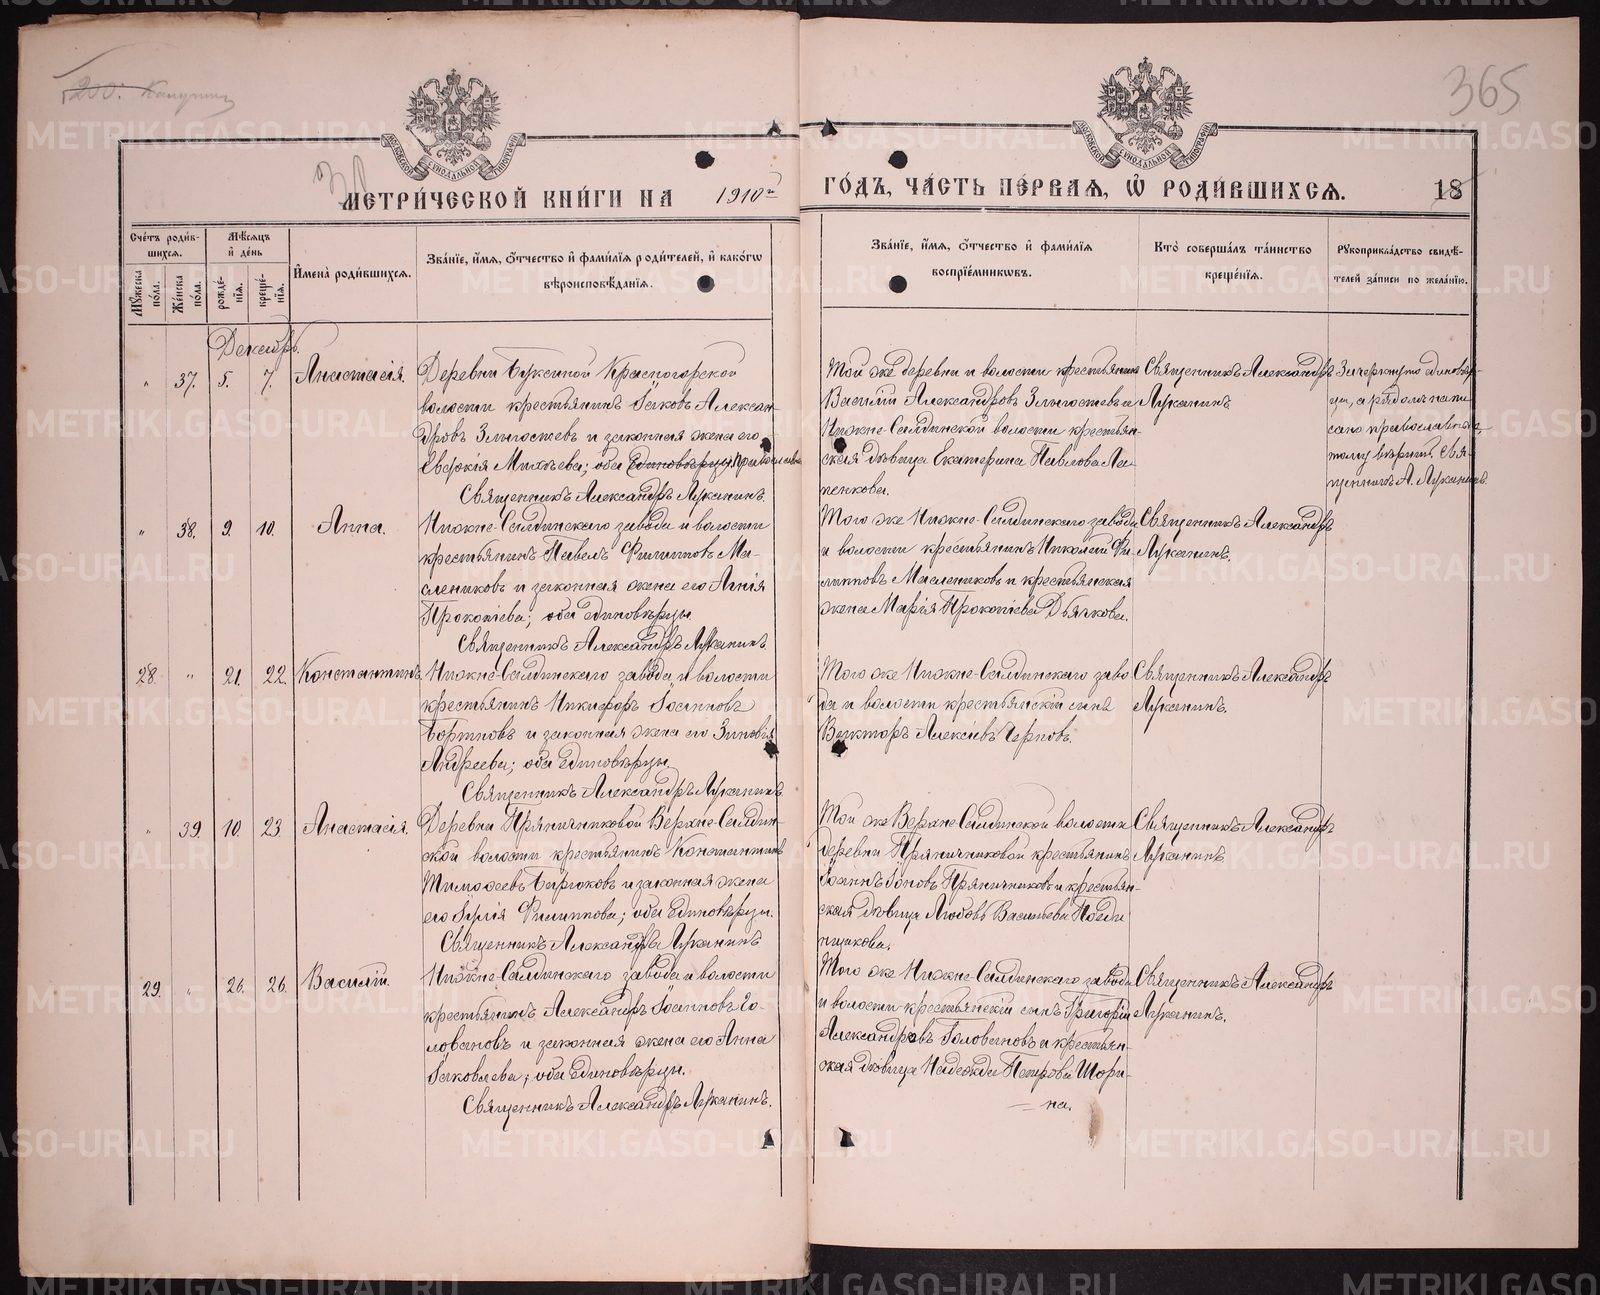 365
МОСКОВСКОЙ СѴНОДАЛЬНОЙ ТИПОГРАФІИ
МОСКОВСКОЙ СѴНОДАЛЬНОЙ ТИПОГРАФІИ
МЕТРИ́ЧЕСКОЙ КНИ́ГИ НА 1910й ГО́ДЪ, ЧА́СТЬ ПЕ́РВАЯ, Ѿ РОДИ́ВШИХСѦ. 18
Сче́тъ роди́в-
шихся.
Мꙋ́жеска по́ла.
Же́нска по́ла.
Мѣ́сяцъ
и҆ де́нь
рожде́-
нїя.
креще́-
нїя.
И҆мена̀ роди́вшихся.
Зва́нїе, и҆́мя, ѻ҆́тчество и҆ фами́лїя роди́телей, и҆ како́гѡ
вѣроисповѣ́данїя.
Зва́нїе, и҆́мя, ѻ҆́тчество и҆ фами́лїя
воспрїе́мникѡвъ.
Кто̀ соверша́лъ та́инство
креще́нїя.
Рꙋкоприкла́дство свидѣ́-
телей за́писи по жела́нїю.
Декабрь.
" 37. 5. 7. Анастасія.
Деревни Буксиной Красногорской
волости крестьянинъ Іаковъ Алексан-
дровъ Злыгостевъ и законная жена его
Евфкія Михѣева; оба единовѣрцы православн
Священникъ Александръ Луканинъ.
Той же деревни и волости крестьянин
Василій Александровъ Злыгостевъ и
Нижне-Салдинской волости крестьян-
ская дѣвица Екатерина Павлова Ла-
пенкова.
Священникъ Александръ
Луканинъ
Зачеркнуто единовѣр-
цы, а рядомъ напи
сано православн
тому вѣрить. Свя-
щенникъ А. Луканинъ.
" 38. 9. 10. Анна.
Нижне-Салдинскаго завода и волости
крестьянинъ Павелъ Филипповъ Ма-
слениковъ и законная жена его Агнія
Прокопіева; оба единовѣрцы.
Священникъ Александръ Луканинъ.
Того же Нижне-Салдинскаго завода
и волости крестьянинъ Николай Фи-
липповъ Маслениковъ и крестьянская
жена Марія Прокопіева Дьячкова.
Священникъ Александръ
Луканинъ.
28. " 21. 22. Константинъ
Нижне-Салдинскаго завода и волости
крестьянинъ Никифоръ Іоанновъ
Бортновъ и законная жена его Зиновія
Андреева; оба единовѣрцы.
Священникъ Александръ Луканинъ.
Того же Нижне-Салдинскаго заво
да и волости крестьянскій сынъ
Викторъ Алексѣевъ Черновъ.
Священникъ Александръ
Луканинъ.
" 39. 10. 23 Анастасія.
Деревни Пряничниковой Верхне-Салдин-
ской волости крестьянинъ Константинъ
Тимофеевъ Бирюковъ и законная жена
его Іулія Филиппова; оба единовѣрцы.
Священникъ Александръ Луканинъ
Той же Верхне-Салдинской волости
деревни Пряничниковой крестьянинъ
Іоаннъ Іоновъ Пряничниковъ и крестьян-
ская дѣвица Любовь Васильева Поеди
нщикова.
Священникъ Александръ
Луканинъ
29. " 26. 26. Василій.
Нижне-Салдинскаго завода и волости
крестьянинъ Александръ Іоанновъ Го-
ловановъ и законная жена его Анна
Іаковлева; оба единовѣрцы.
Священникъ Александръ Луканинъ.
Того же Нижне-Салдинскаго завода
и волости крестьянскій сынъ Григорій
Александровъ Головановъ и крестьян-
ская дѣвица Надежда Петрова Шори-
на.
Священникъ Александръ
Луканинъ.
METRIKI.GASO-URAL.RU